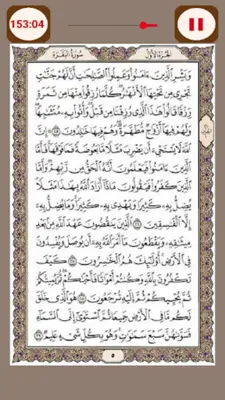 153:04
الجزء الأول
سورة البقرة
وَبَشِّرِ الَّذِينَ ءَامَنُوا وَعَمِلُوا الصَّالِحَاتِ أَنَّ لَهُمْ جَنَّاتٍ
تَجْرِي مِن تَحْتِهَا الْأَنْهَارُ كُلَّمَا رُزِقُوا مِنْهَا مِن ثَمَرَةٍ
رِّزْقًا قَالُوا هَٰذَا الَّذِي رُزِقْنَا مِن قَبْلُ وَأُتُوا بِهِ مُتَشَابِهًا
وَلَهُمْ فِيهَا أَزْوَاجٌ مُّطَهَّرَةٌ وَهُمْ فِيهَا خَالِدُونَ ۝٢٥ ۞ إِنَّ
اللَّهَ لَا يَسْتَحْيِي أَن يَضْرِبَ مَثَلًا مَّا بَعُوضَةً فَمَا فَوْقَهَا
فَأَمَّا الَّذِينَ ءَامَنُوا فَيَعْلَمُونَ أَنَّهُ الْحَقُّ مِن رَّبِّهِمْ وَأَمَّا
الَّذِينَ كَفَرُوا فَيَقُولُونَ مَاذَا أَرَادَ اللَّهُ بِهَٰذَا مَثَلًا
يُضِلُّ بِهِ كَثِيرًا وَيَهْدِي بِهِ كَثِيرًا وَمَا يُضِلُّ بِهِ
إِلَّا الْفَاسِقِينَ ۝٢٦ الَّذِينَ يَنقُضُونَ عَهْدَ اللَّهِ مِن بَعْدِ
مِيثَاقِهِ وَيَقْطَعُونَ مَا أَمَرَ اللَّهُ بِهِ أَن يُوصَلَ وَيُفْسِدُونَ
فِي الْأَرْضِ أُولَٰئِكَ هُمُ الْخَاسِرُونَ ۝٢٧ كَيْفَ
تَكْفُرُونَ بِاللَّهِ وَكُنتُمْ أَمْوَاتًا فَأَحْيَاكُمْ ثُمَّ يُمِيتُكُمْ
ثُمَّ يُحْيِيكُمْ ثُمَّ إِلَيْهِ تُرْجَعُونَ ۝٢٨ هُوَ الَّذِي خَلَقَ
لَكُم مَّا فِي الْأَرْضِ جَمِيعًا ثُمَّ اسْتَوَىٰ إِلَى السَّمَاءِ
فَسَوَّاهُنَّ سَبْعَ سَمَاوَاتٍ وَهُوَ بِكُلِّ شَيْءٍ عَلِيمٌ ۝٢٩
٥